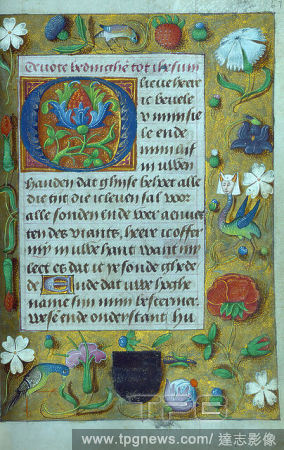 Devote bedinghe tot ihesum
lieve heere
ic bevele
v mijn sie
le ende
mijn lijf
in uwen
handen dat ghise behoet alle
die tijt dat ic leven sal voor
alle sonden ende voer
ten des viants, heere ic offer
my in uwe hant want my
leet es dat ic ye sonde ghede
de dat uwe hoghe
name mijn beschermer
wese ende onderstant hu
TPG
www.tpgnews.com/達志影像